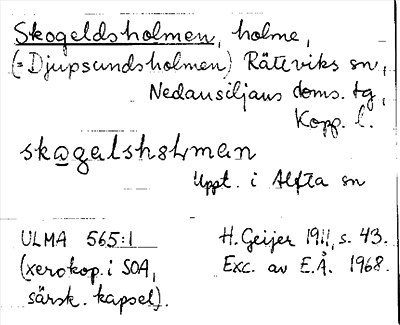 Skogeldsholmen, holme,
(= Djupsundsholmen) Rättviks sn,
Nedansiljans doms. tg,
Kopp. l.
skogalshɷLman
Uppt. i Alfta sn
ULMA 565:1 H. Geijer 1911, s. 43.
(xerokop. i SOA, Exc. av E.Å. 1968.
särsk. kapsel).